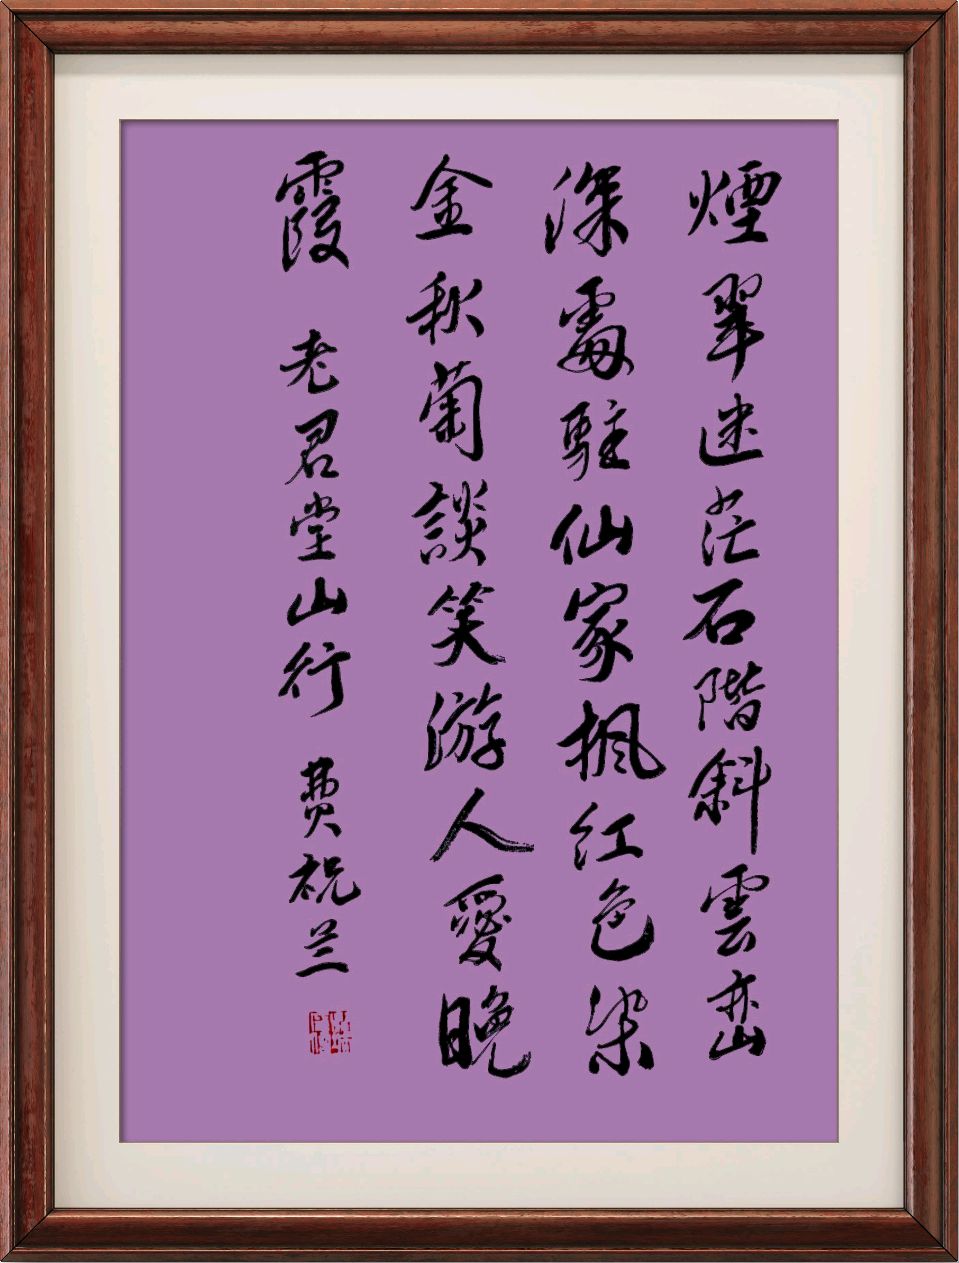 煙翠迷茫石階斜雲峦
深處駐仙家楓红色染
金秋菊談笑游人愛晚
霞 老君堂山行 费祝兰